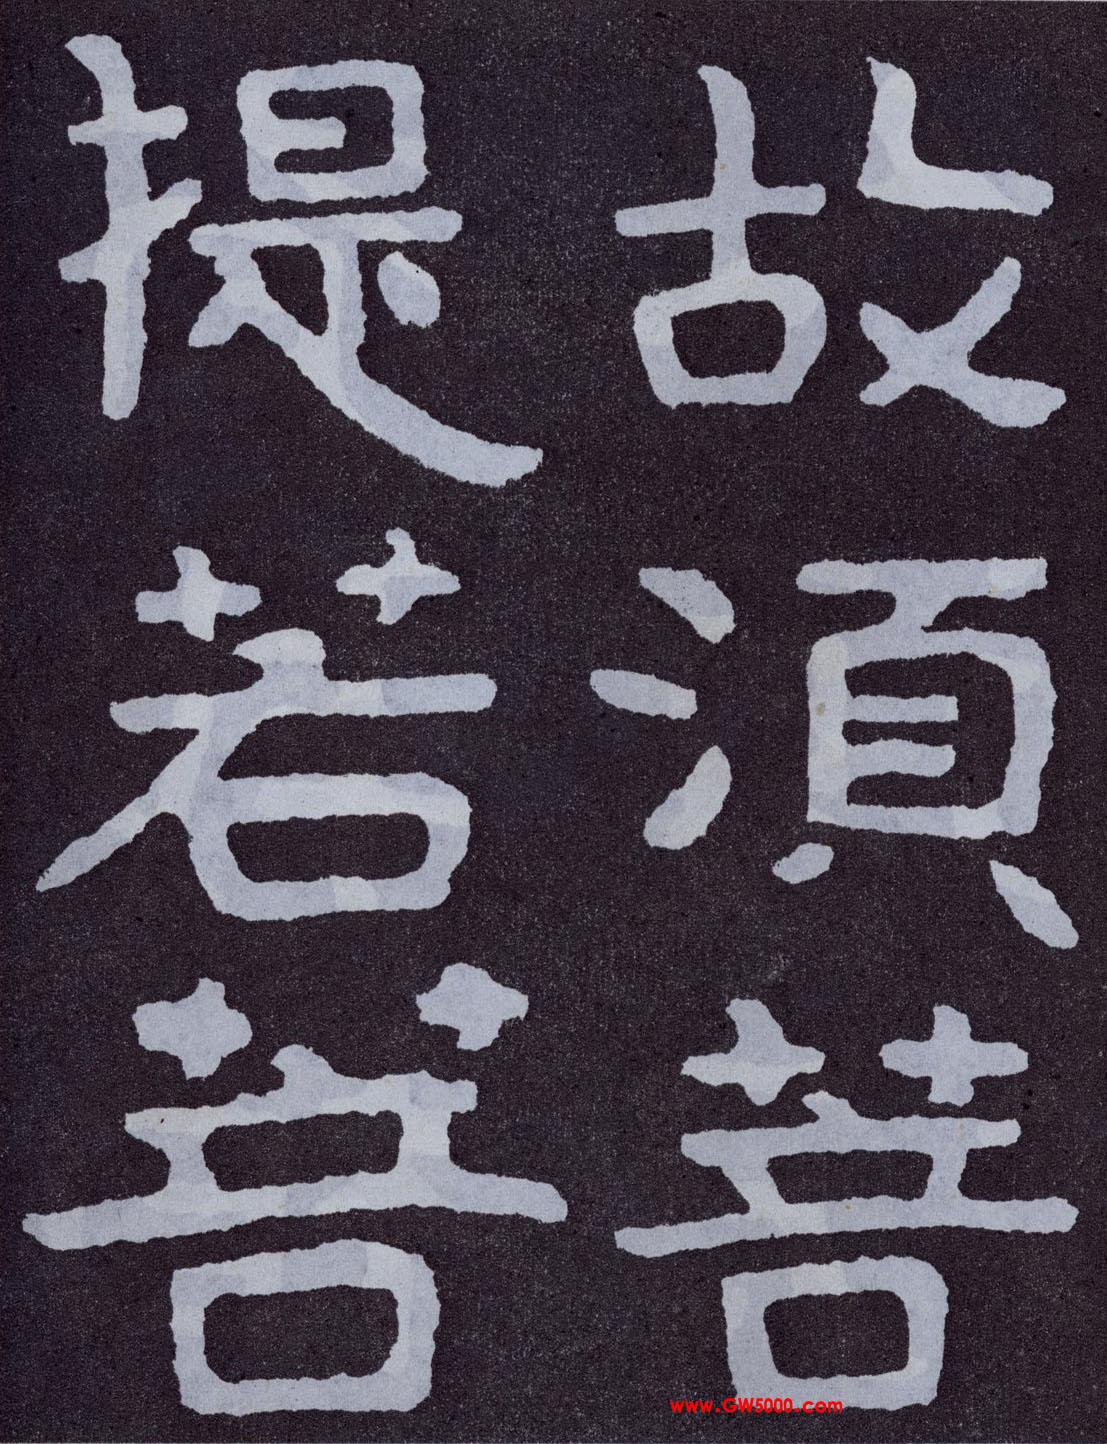 故湏菩
提若菩
www.GW5000.com